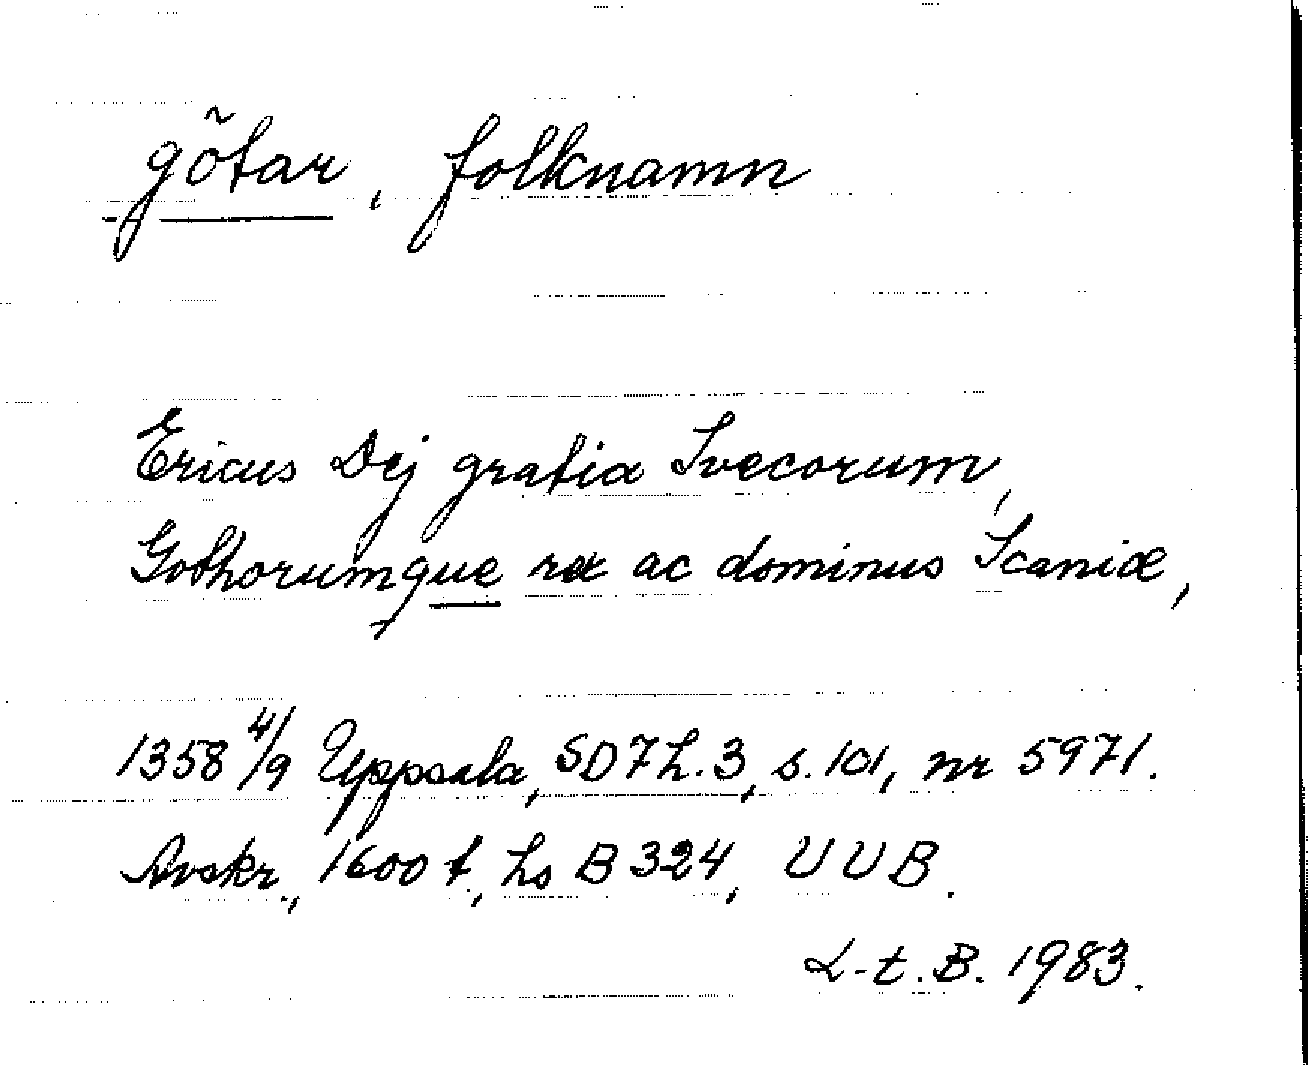 götar, folknamn
Ericus Dej gratia Svecorum,
Gothorumque rex ac dominus Scaniæ,
1358 4/9 Uppsala, SD7h.3, s.101, nr 5971.
Avskr., 1600 t, hs B 324, UUB.
L-t.B. 1983.